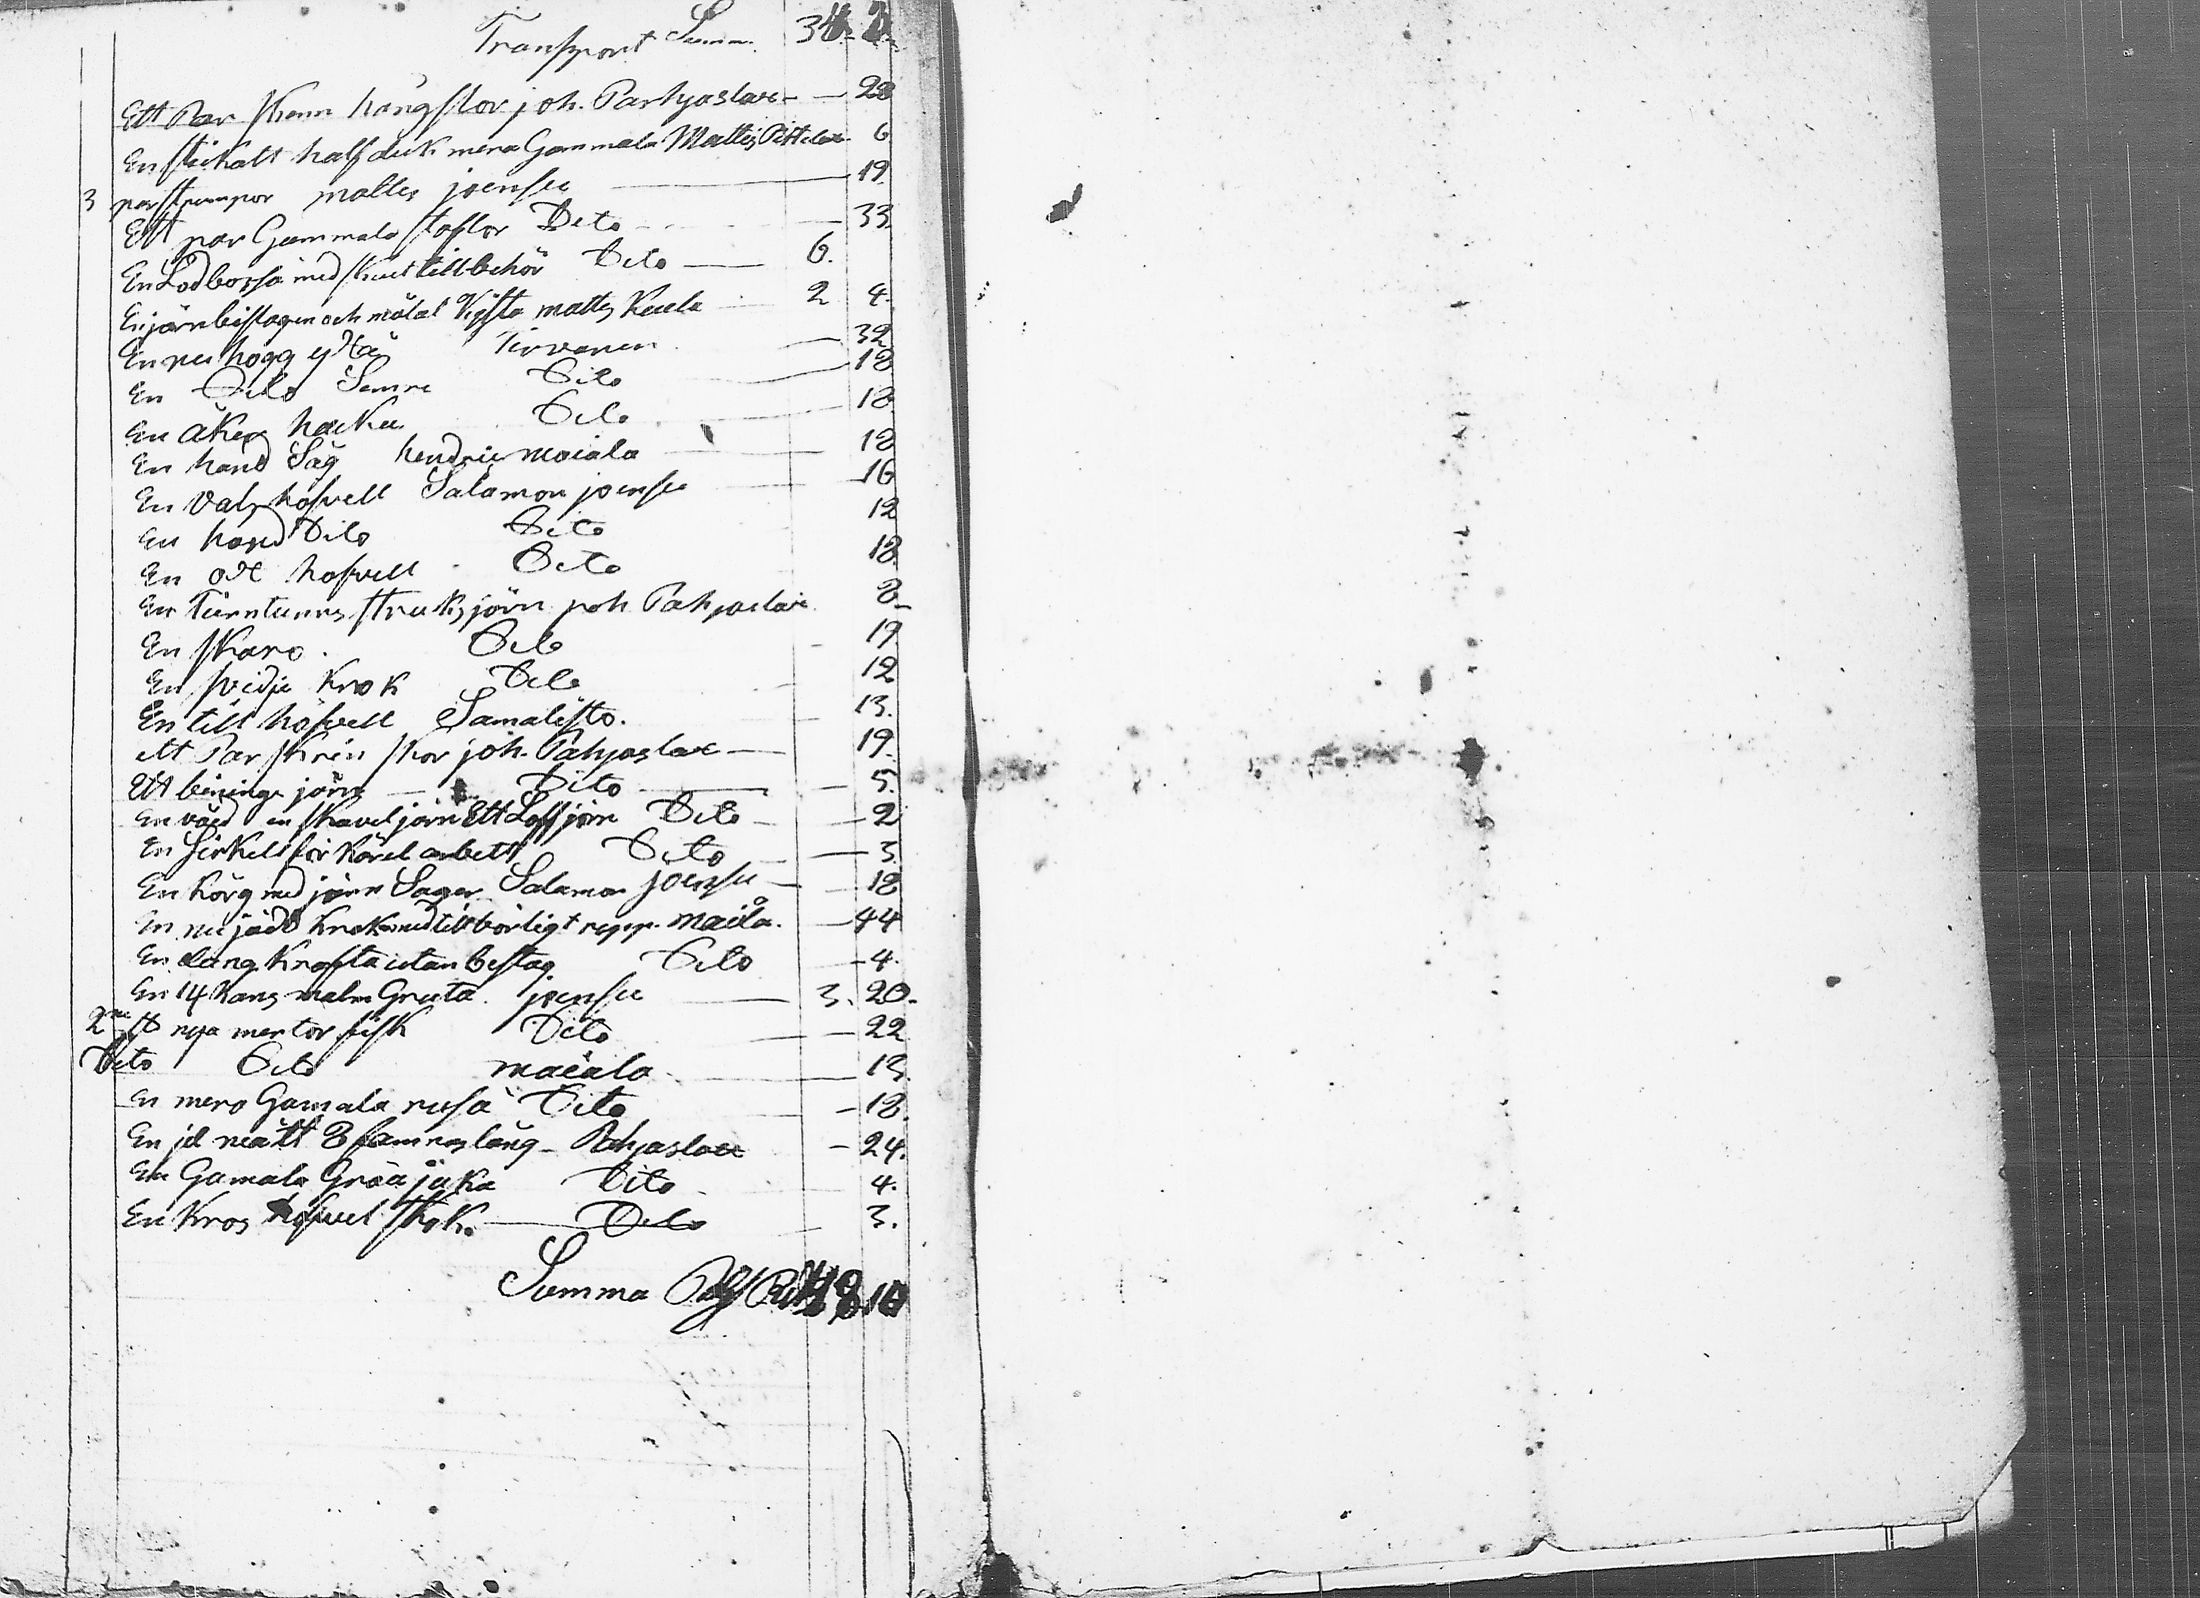 Transport Summ. 34. 2.
Ett Par skenn hangskor joh. Parhjaslax — 28
En stickatt halfduk mera Gammala Mattes Pittelax 6
3 par strumpor mattes joensu — 19
Ett par Gammala stoflor Dito — 33
En Lodbossa med skut tillbehör Dito — 6.
En järnbeslagen och målat Kista mattes Kuula 2 4.
En nu hogg yxa Tirvanen — 32
En Dito Semre Dito — 18
En åker hacka Dito — 18
En hand Såg hendric maiala — 18
En Vals hofvell Salamon joensu — 16
En hand Dito Dito 12
En ovt hofvell Dito 18
En Tärntunns struks järn joh Pahjaslax 8
En skavo. Dito - 19
En svidje Krok Dito 12
En till höfvell Samalisto. 13.
ett Par skrin skor joh. Pahjaslax — 19.
Ett beninge järn — Dito — 5.
En våed en skaveljärn Ett Loffjärn Dito — 2
En Sirkell för Kärel arbett Dito — 3
En Körg med järn Sager Salamon joensu — 18
En nu jädd Krok med tillbörligt repp. maila. — 44
En lång Krafsta utan beslag Dito — 4.
En 14 Kans malm Gruta. joensu — 3. 20.
2 st nya mertor fisk Dito — 22
Dito Dito maiala — 13.
En mera Gamala rusa Dito — 18.
En jd nätt 8 famnas lång - Pahjaslax — 24.
En Gamala Gråa juka Dito 4.
En Kros hofvel stok. — Dito 3.
Summa